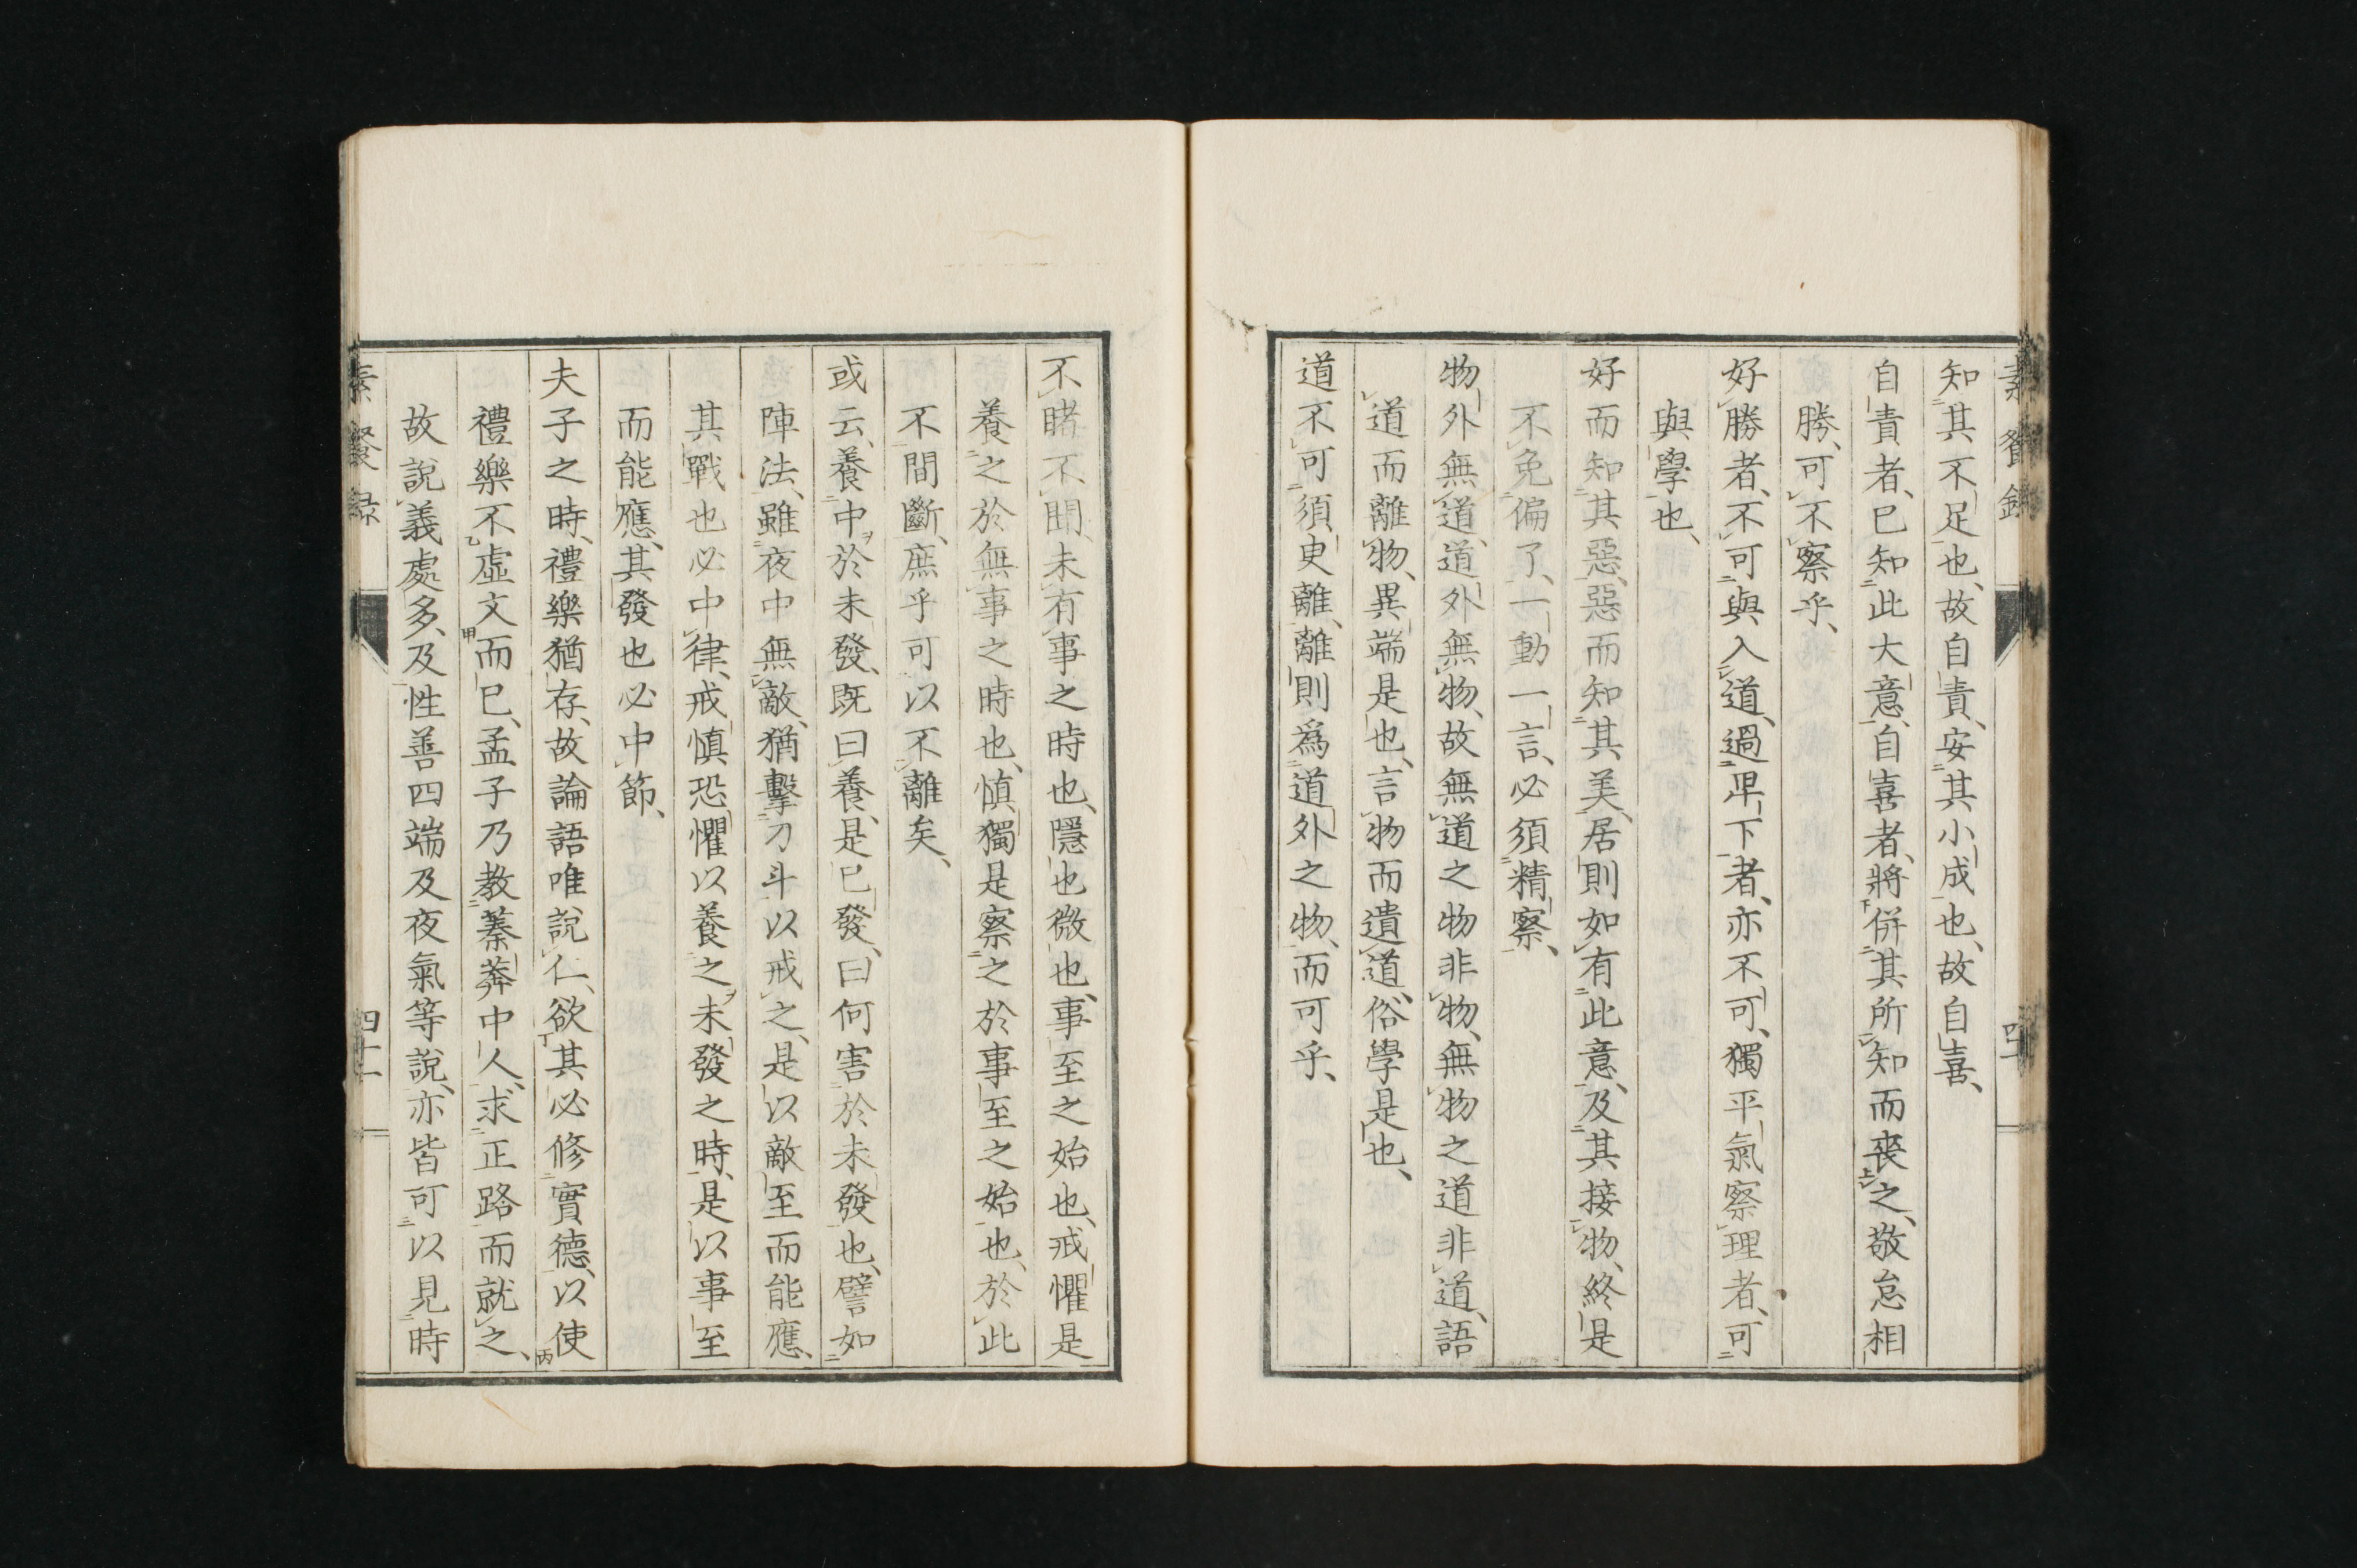 知其不足也、故自責、安其小成也、故自喜、
自責者、已知此大意、自喜者、將併其所知而喪之、敬怠相
勝、可不察乎、
好勝者、不可與入道、過卑下者、亦不可、獨平氣察理者、可
與學也、
好而知其惡、惡而知其美、居則如有此意、及其接物、終是
不免偏了、一動一言、必須精察、
物外無道、道外無物、故無道之物非物、無物之道非道、語
道而離物、異端是也、言物而遺道、俗學是也、
道不可須臾離、離則爲道外之物、而可乎、
不睹不聞、未有事之時也、隱也微也、事至之始也、戒懼是
養之於無事之時也、愼獨是察之於事至之始也、於此
不間斷、庶乎可以不離矣、
或云、養中於未發、既曰養、是已發、曰何害於未發也、譬如
陣法、雖夜中無敵、猶擊刀斗以戒之、是以敵至而能應、
其戰也必中律、戒愼恐懼以養之未發之時、是以事至
而能應、其發也必中節、
夫子之時、禮樂猶存、故論語唯說仁、欲其必修實德、以使
禮樂不虛文而已、孟子乃教蓁莽中人、求正路而就之、
故說義處多、及性善四端及夜氣等說、亦皆可以見時
素餐録
四十一